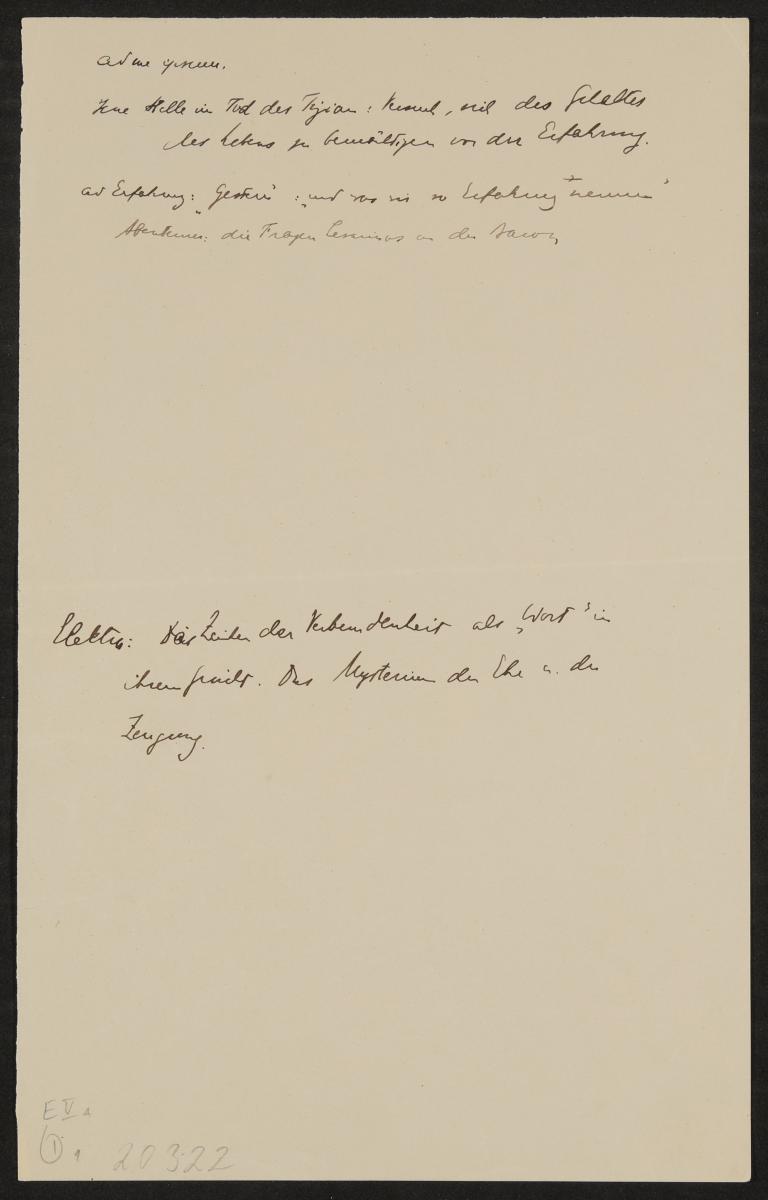 ad me ipsum.
Jene Stelle im Tod des Tizian: Versuch, viel des Gehaltes
des Lebens zu bewältigen vor der Erfahrung.
ad Erfahrung: "Gestern": „und was wir so Erfahrung nennen"
Abenteurer: die Fragen Cesarinos an den Baron
Elektra: Das Zeichen der Verbundenheit als „Wort" in
ihrem Gesicht. Das Mysterium der Ehe u. der
Zeugung.
E V a
1. 20322